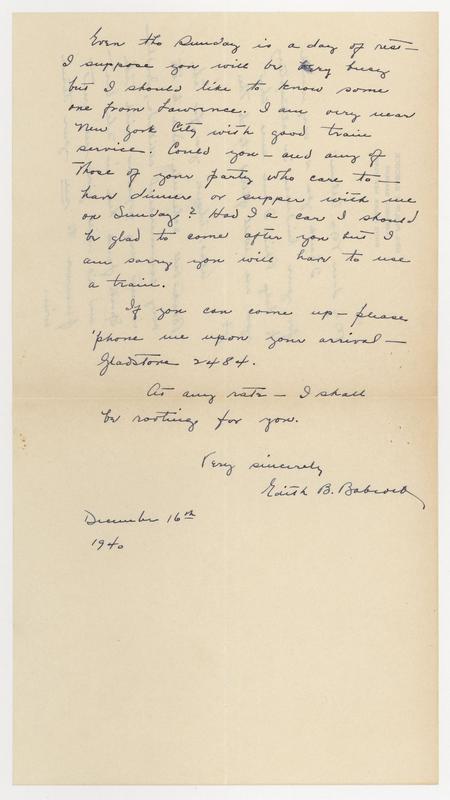 Even tho Sunday is a day of rest—
I suppose you will be very busy
but I should like to know some
one from Lawrence. I am very near
New York City with good train
service. Could you — and any of
those of your party who care to —
have dinner or supper with me
on Sunday? Had I a car I should
be glad to come after you but I
am sorry you will have to use
a train.
If you can come up — please
'phone me upon your arrival —
Gladstone 2484.
At any rate — I shall
be rooting for you.
Very sincerely
Edith B. Babcock
December 16th
1940